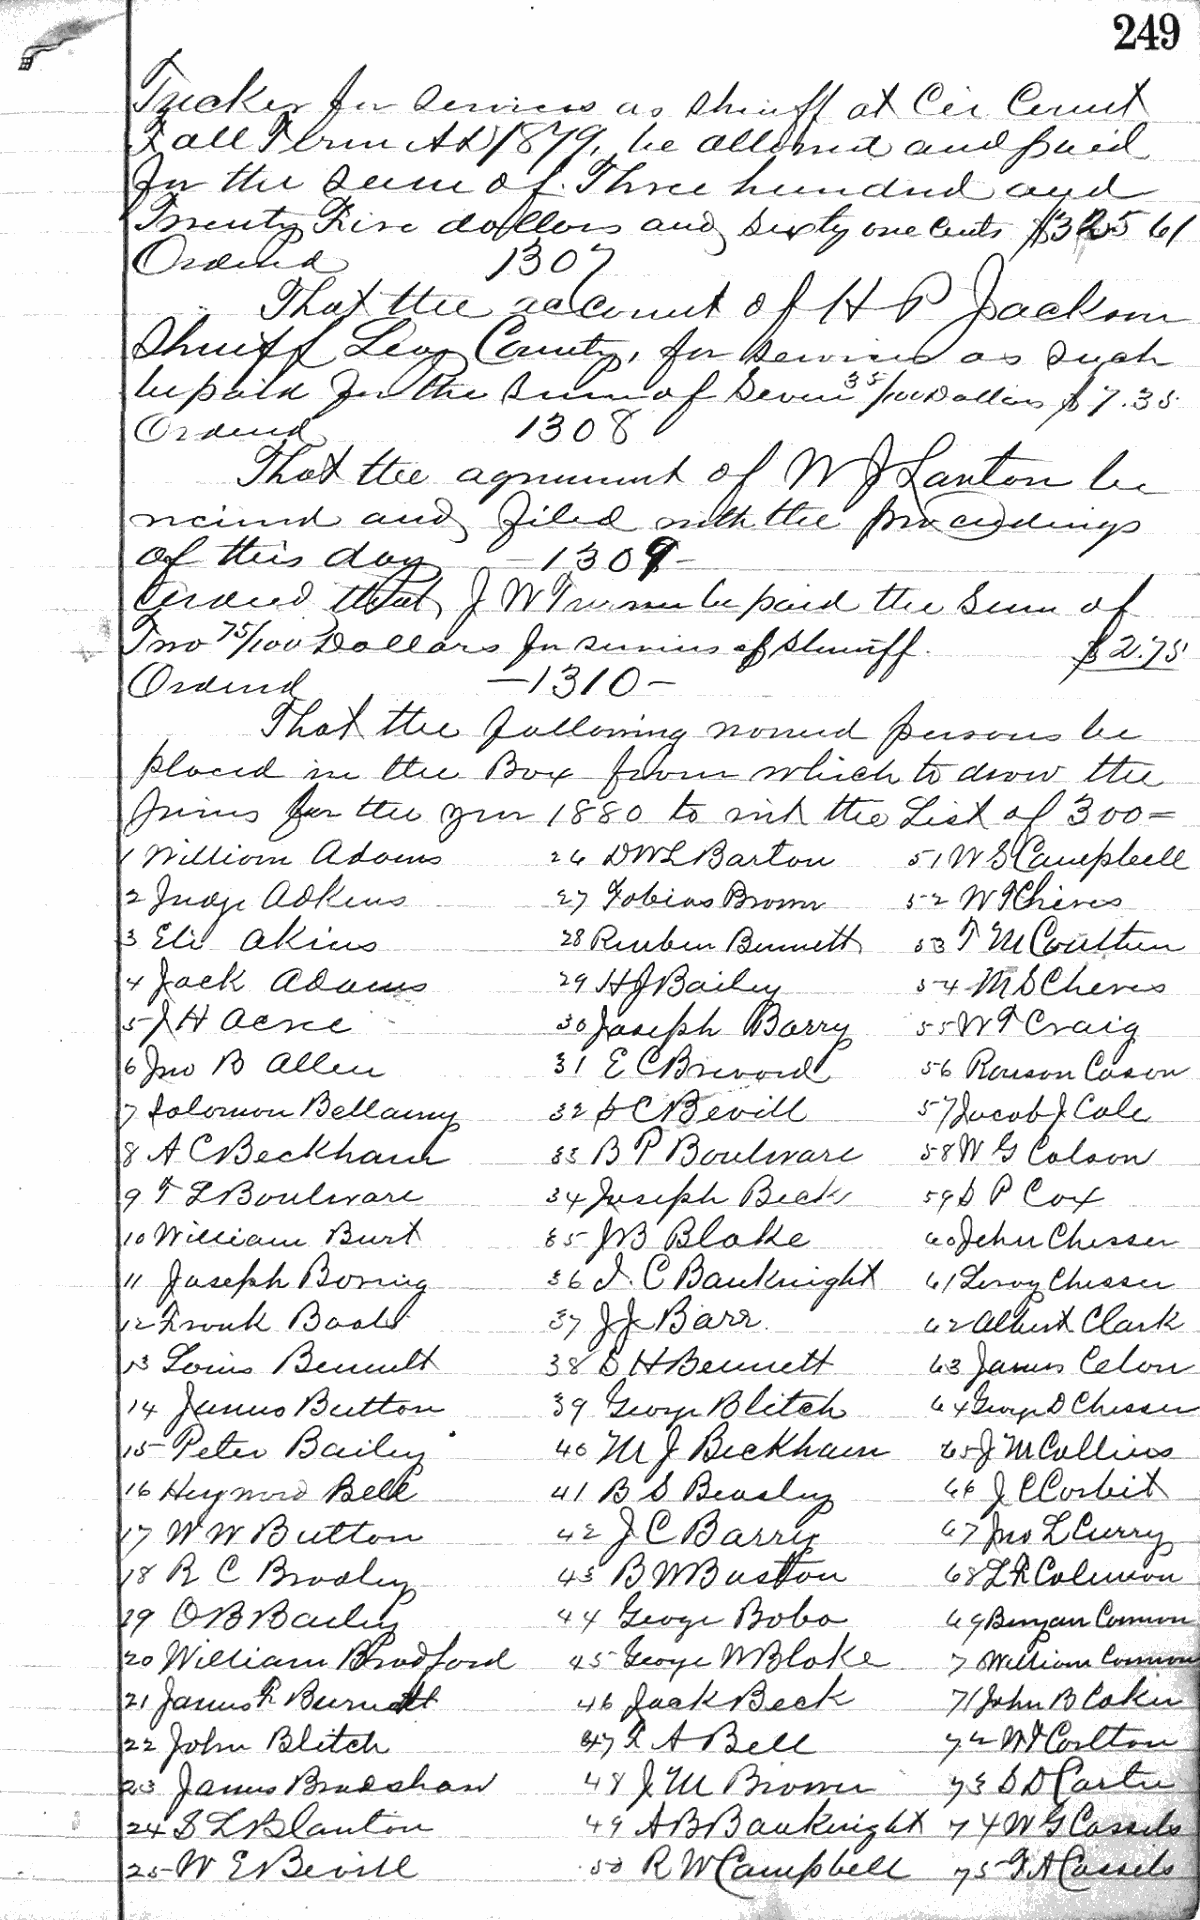 249
Tucker for services as Sheriff at Cir Court
Fall Term AD 1879, be allowed and paid
for the sum of Three hundred and
Twenty Five dollars and Sixty one cents $325 61
Ordered 1307
That the account of H P Jackson
Sheriff Levy County, for services as such
be paid for the Sum of Seven 35/100 Dollars $7.35
Ordered 1308
That the agreement of W J Lanton be
received and filed with the proceedings
of this day -1309-
Ordered that J W Turner be paid the Sum of
Two 75/100 Dollars for services of Sheriff. $2.75
Ordered -1310-
That the following named persons be
placed in the Box from which to draw the
Juries for the year 1880 to wit the List of 300=
1 William Adams 26 DWL Barton 51 W S Campbell
2 Judge Adkins 27 Tobias Brown 52 W F Cheves
3 Eli Akins 28 Reuben Bennett 53 T M Coulter
4 Jack Adams 29 H J Bailey 54 M S Cheves
5 J H Acree 30 Joseph Barry 55 W T Craig
6 Jno B Allen 31 E C Brewood 56 Ranson Cason
7 Solomon Bellamy 32 S C Bevill 57 Jacob J Cole
8 A C Beckham 33 B P Boulware 58 W G Colson
9 T L Boulware 34 Joseph Beck 59 S P Cox
10 William Burt 35 J B Blake 60 John Chesser
11 Joseph Boring 36 I. C Bauknight 61 Leroy Chesser
12 Frank Boals 37 J J Barr 62 Albert Clark
13 Louis Bennett 38 S H Bennett 63 James Celon
14 James Button 39 George Blitch 64 George D Chesser
15 Peter Bailey 40 M J Beckham 65 J M Collins
16 Heyward Bell 41 B S Beasley 66 J C Corbit
17 W W Button 42 J C Barry 67 Jno L Curry
18 R C Bradley 43 B W Buston 68 L R Coleman
19 O B Bailey 44 George Bobo 69 Bunyan Cannon
20 William Bradford 45 George W Blake 7 William Cannon
21 James F Burnett 46 Jack Beck 71 John B Coker
22 John Blitch 47 F A Bell 72 W T Carlton
23 James Bradshaw 48 J M Brown 73 S D Carter
24 S L Blanton 49 A B Bauknight 74 W G Cassels
25 W E Bevill 50 R W Campbell 75 T A Cassels